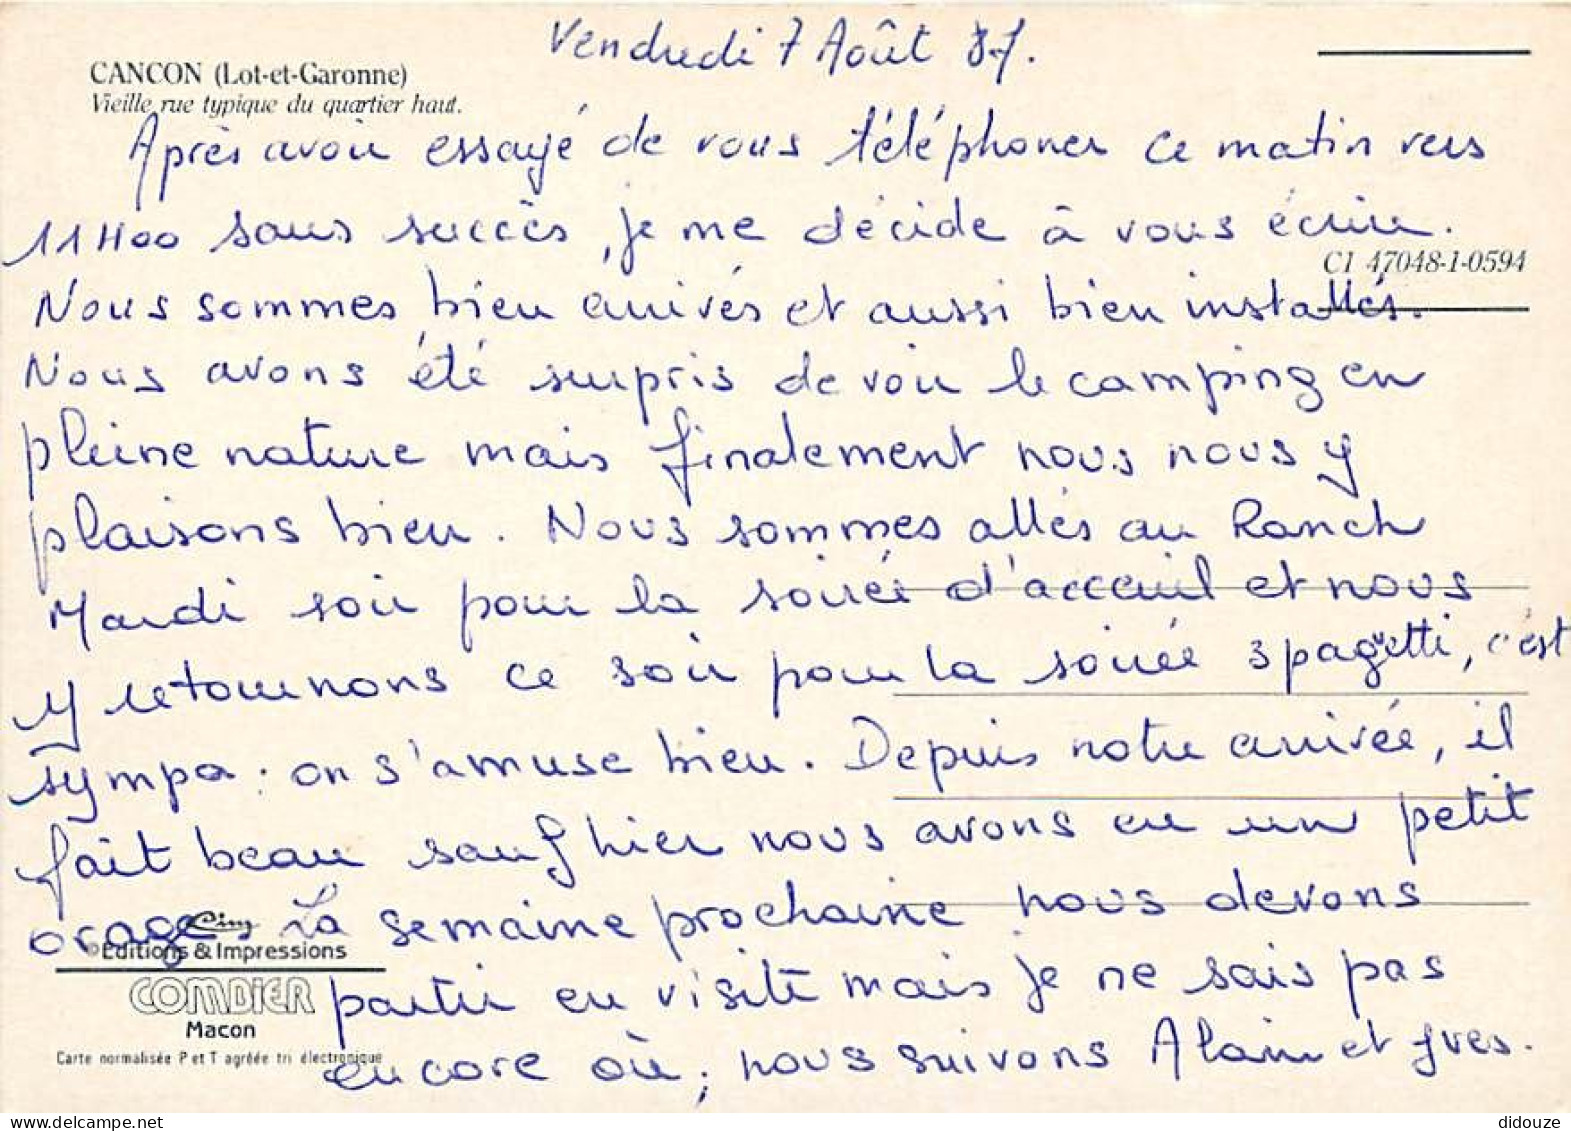 Vendredi 7 Août 87.
CANCON (Lot-et-Garonne)
Vieille rue typique du quartier haut.
Après avoir essayé de vous téléphoner ce matin vers
11H00 sans succès, je me décide à vous écrire.
CI 47048-1-0594
Nous sommes bien arrivés et aussi bien installés.
Nous avons été surpris de voir le camping en
pleine nature mais finalement nous nous y
plaisons bien. Nous sommes allés au Ranch
Mardi soir pour la soirée d'acceuil et nous
y retournons ce soir pour la soirée spaguetti, c'est
sympa : on s'amuse bien. Depuis notre arrivée, il
fait beau sauf hier nous avons eu un petit
orage. La semaine prochaine nous devons
© Editions & Impressions
partir en visite mais je ne sais pas
COMBIER
Macon
encore où ; nous suivons Alain et Yves.
Carte normalisée P et T agréée tri électronique
delcampe.net
didouze